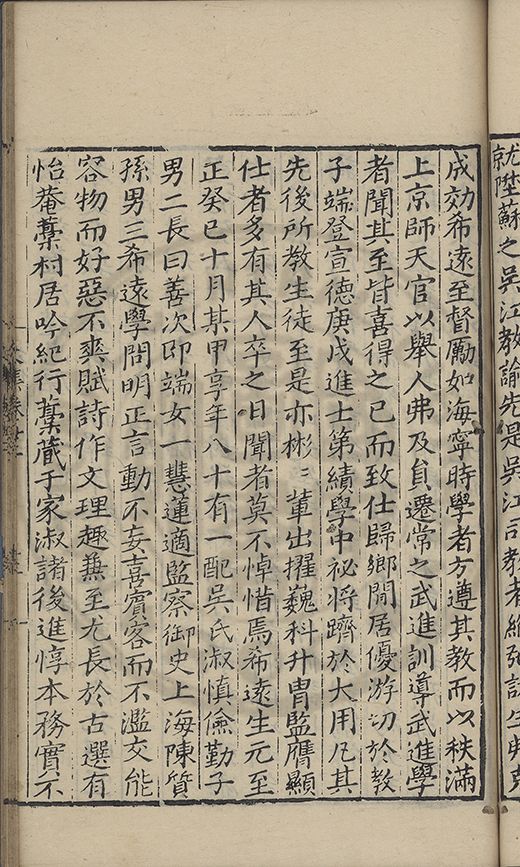 就陞蘇之吳江教諭先是吳江司教者
成効希遠至督勵如海寧時學者方遵其教而以秩滿
上京師天官以舉人弗及貟遷常之武進訓導武進學
者聞其至皆喜得之已而致仕歸鄉閒居優游切於教
子端登宣德庚戌進士第績學中祕將躋於大用凡其
先後所教生徒至是亦彬〻輩出擢巍科升胄監膺顯
仕者多有其人卒之日聞者莫不悼惜焉希遠生元至
正癸巳十月某甲享年八十有一配吳氏淑慎儉勤子
男二長曰善次即端女一慧蓮適監察御史上海陳質
孫男三希遠學問明正言動不妄喜賓客而不濫交能
容物而好惡不爽賦詩作文理趣兼至尤長於古選有
怡菴藁村居吟紀行藁藏于家淑諸後進惇本務實不